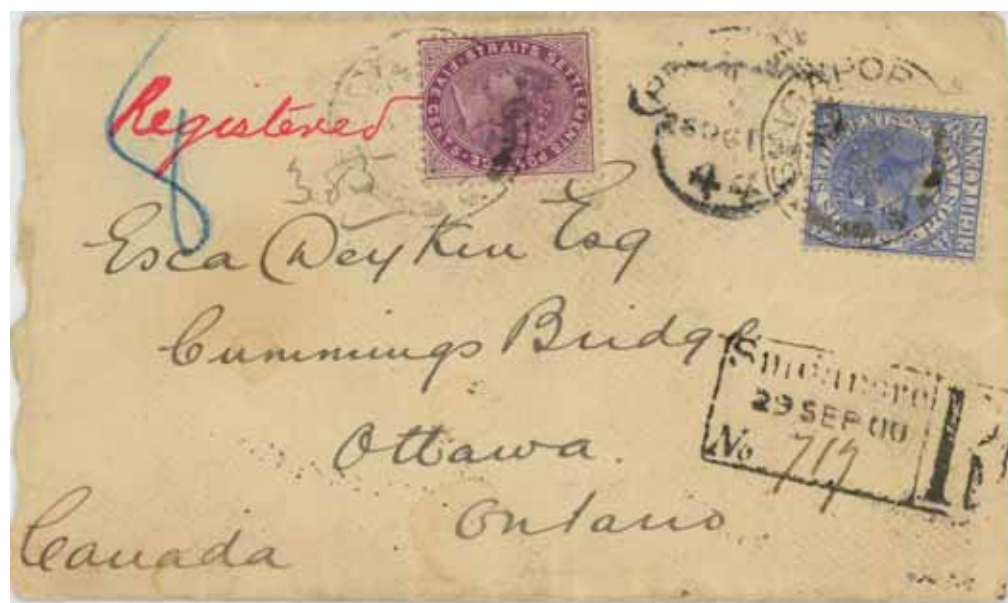 Registered
STRAITS SETTLEMENTS POSTAGE
383
44
POSTAGE
EIGHT CENTS
Esca Deyken Esq
Cummings Bridge
Ottawa
Ontario
Canada
Singapore
29 SEP 00
No 717